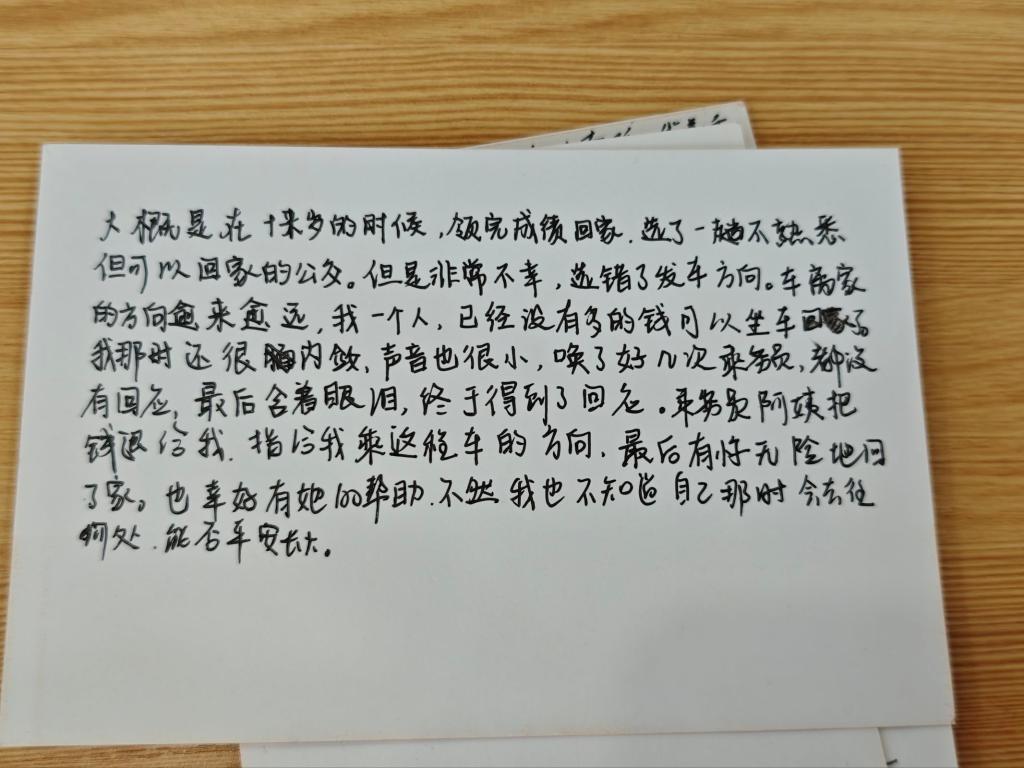 大概是在十来岁的时候,领完成绩回家.选了一趟不熟悉
但可以回家的公交。但是非常不幸,选错了发车方向。车离家
的方向愈来愈远,我一个人,已经没有多的钱可以坐车回家了
我那时还很内敛,声音也很小,唤了好几次乘务员,都没
有回应,最后含着眼泪,终于得到了回应。乘务员阿姨把
钱退给我.指给我乘返程车的方向.最后有惊无险地回
了家。也幸好有她的帮助.不然我也不知道自己那时会去往
何处.能否平安长大。